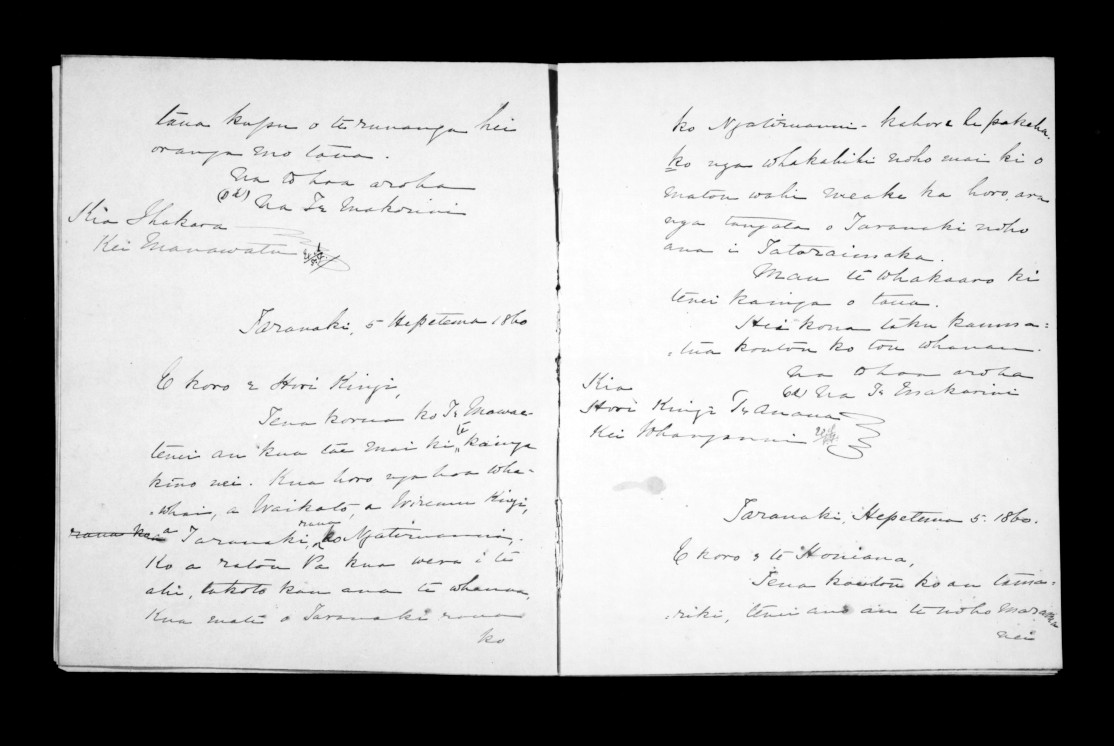 tāua kupu o te runanga hei
oranga mo tāua.
Na to hoa aroha
Na Te Makorini
Kia Ihakara
Kei Manawatu
Taranaki, 5 Hepetema 1860
E koro e Hori Kingi,
Tena korua ko Te Mawae-
tenei au kua tae mai ki te kainga
kino nei. Kua horo nga hoa wha-
-whai, a Waikato, a Wiremu Kingi,
a Taranaki, raua ko Ngatiruanui.
Ko a ratou Pa kua wera i te
ahi, takoto kau ana te whenua,
Kua mate o Taranaki raua
ko
ko Ngatiruanui - kahore he pakeha.
ko nga whakahihi noho mai ki o
matou wahi weake ka horo, ara
nga tangata o Taranaki noho
ana i Tataraimaka.
Mau te whakaaro ki
tenei kainga o taua.
Hei kona taku kauma=
=tua koutou ko tou whanau.
Na to hoa aroha
Na Te Makarini
Kia
Hori Kingi Te Anaua
Kei Whanganui
Taranaki, Hepetema 5. 1860.
E koro e te Honiana,
Tena koutou ko au tama=
=riki, tenei ano au te noho marama
nei